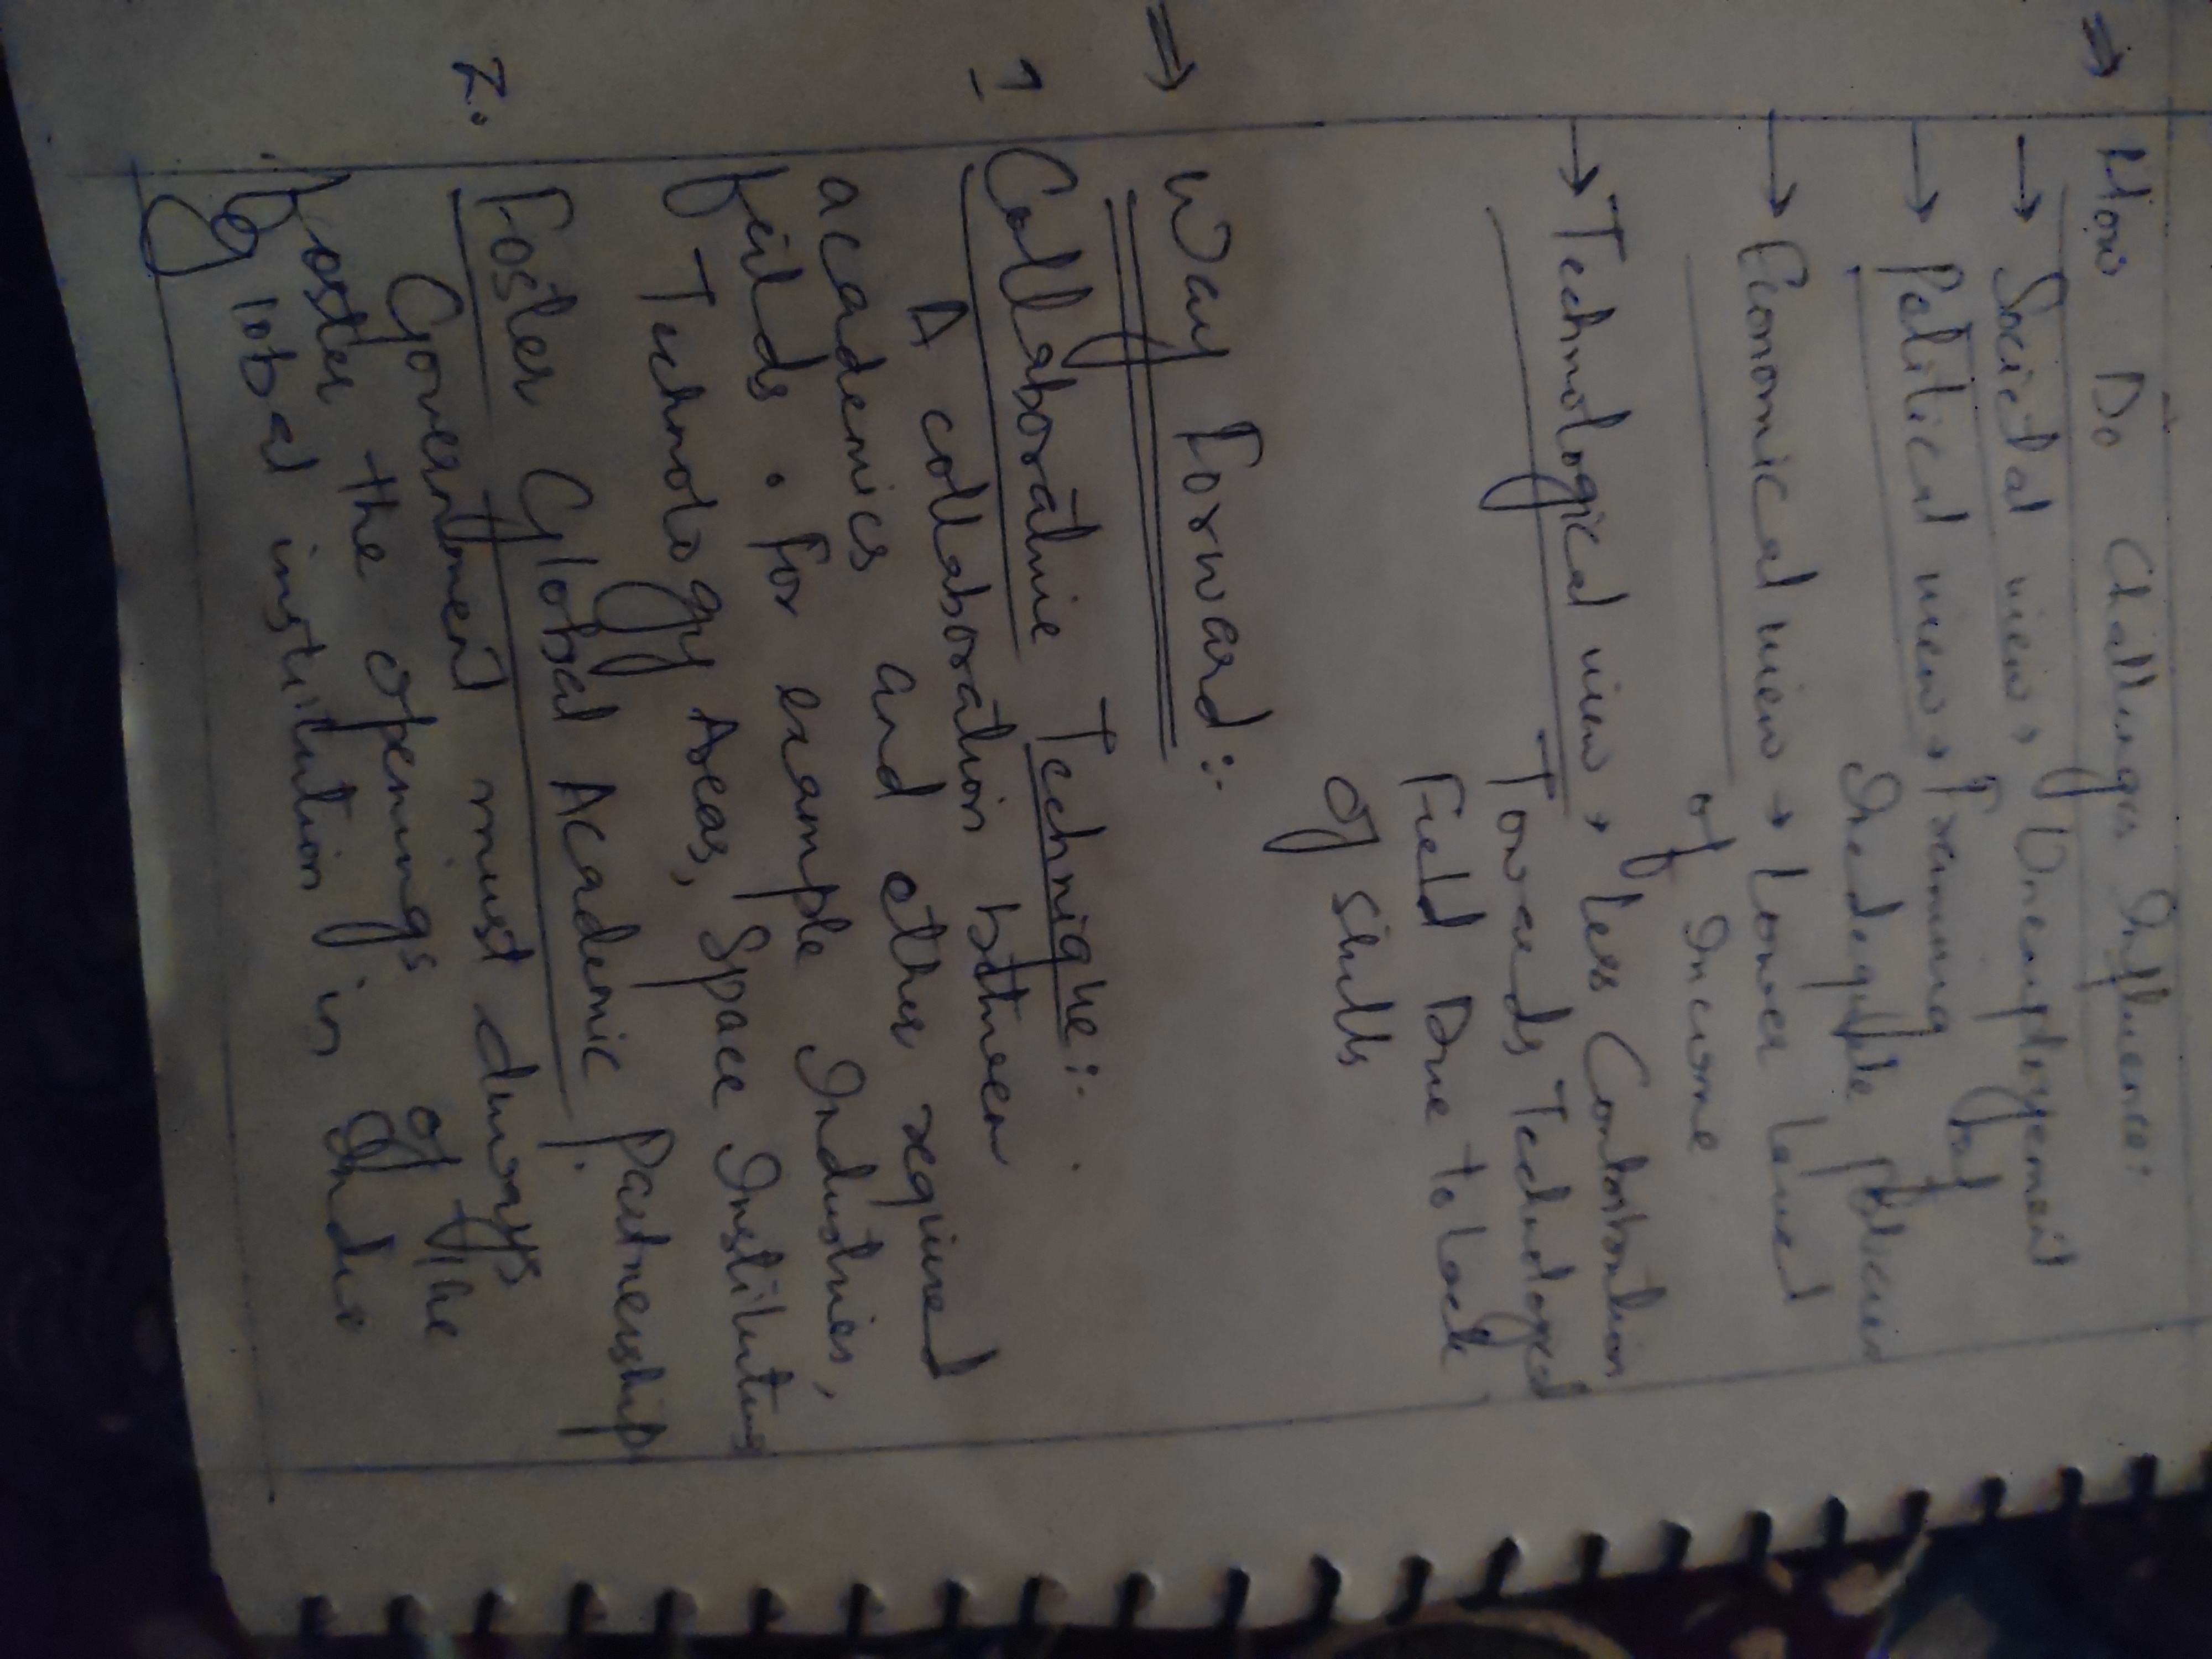 ⇒ How Do Challenges Influence:
→ Societal view → Unemployement
→ Political view → Framing of
Inadequate policies
→ Economical view → Lower level
of Income
→ Technological view → less Contribution
Towards Technological
Field Due to lack
of skills
⇒ Way Forward:-
1 Collaborative Technique:-
A collaboration between
academics and other required
feilds. For example Industries,
Technology Areas, Space Institutes
2. Foster Global Academic Partnership.
Goverentment must always
foster the openings of the
Global institution in